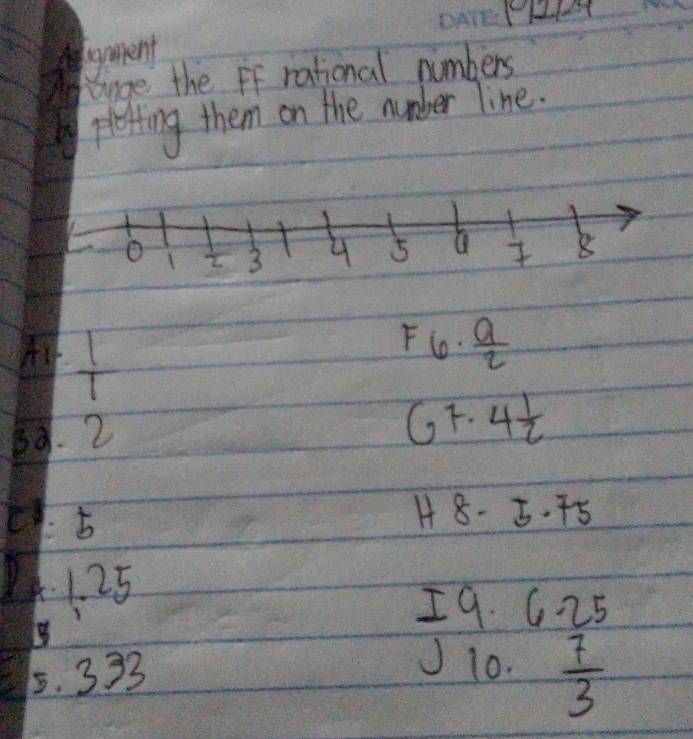 DATE:
Assignment
Arrange the FF rational numbers
by plotting them on the number line.
0 1 2 3 4 5 6 7 8
A 1. 1/1
F 6. 9/2
B 2. 2
G 7. 4 1/2
C 3. 5
H 8. 5.75
D 4. 1.25
I 9. 6.25
E 5. 333
J 10. 7/3